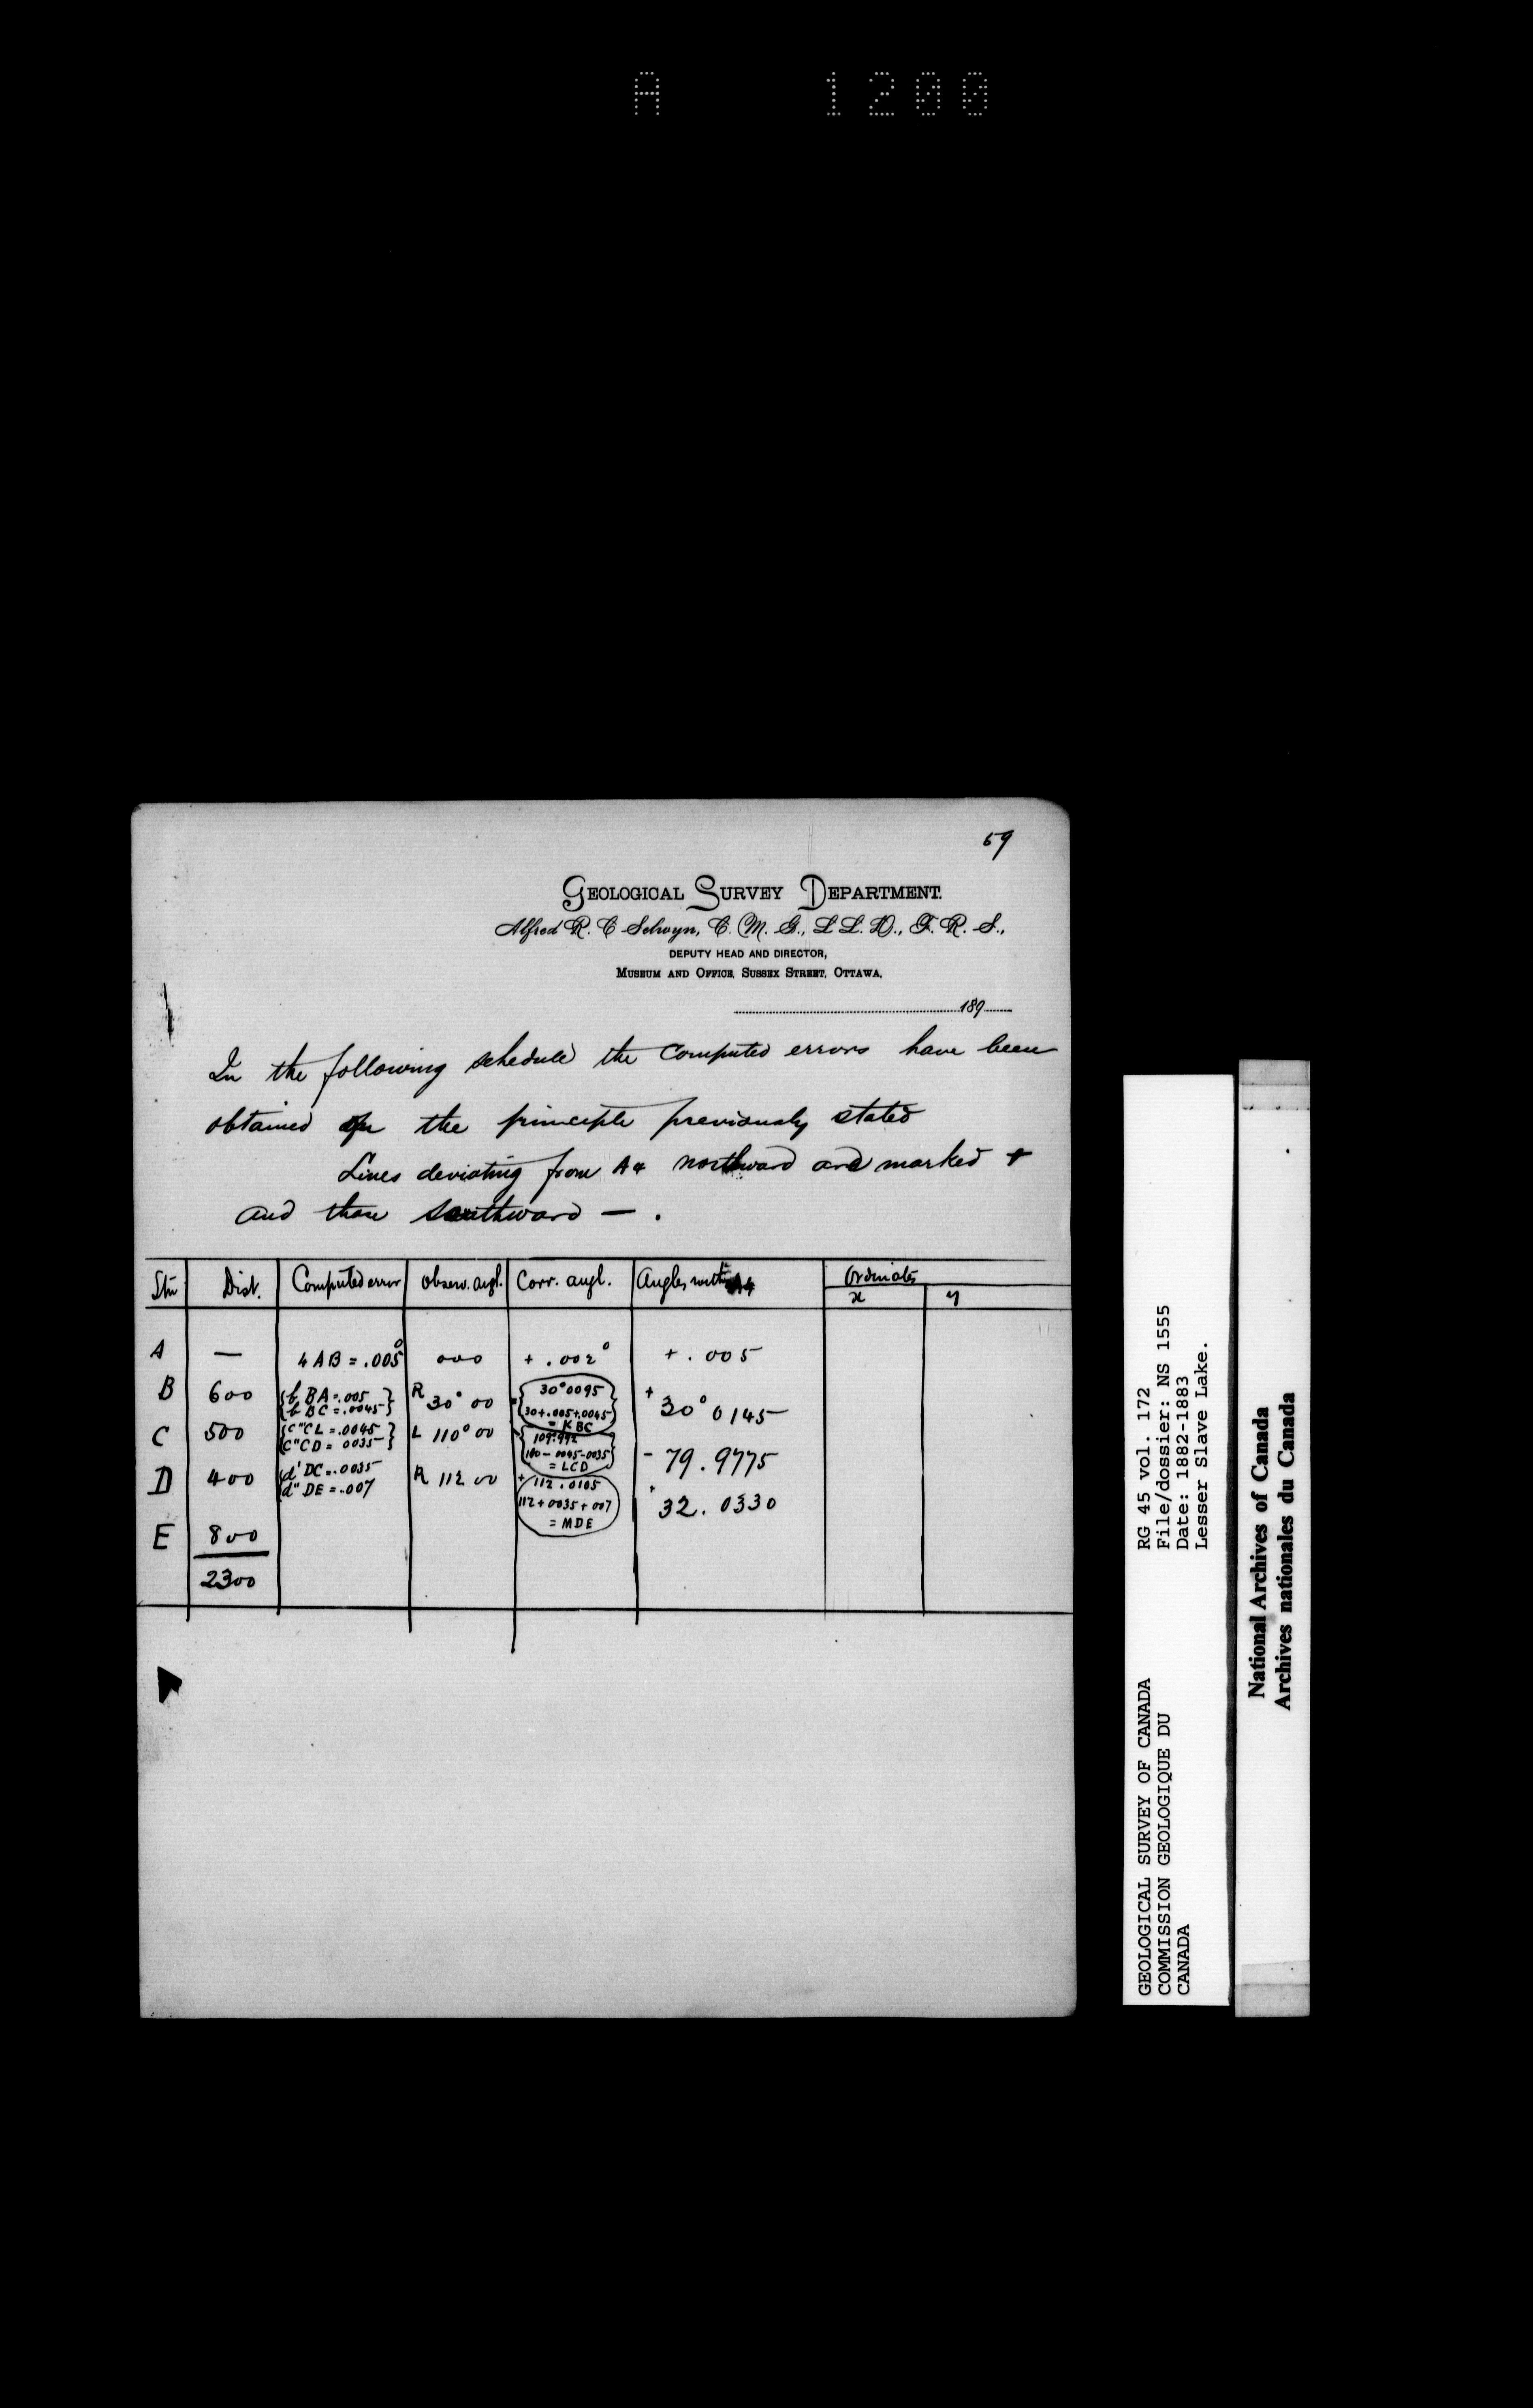 A 1200
59
GEOLOGICAL SURVEY DEPARTMENT.
Alfred R. C Selwyn, C. M. G., L L. D., F. R. S.,
DEPUTY HEAD AND DIRECTOR,
MUSEUM AND OFFICE, SUSSEX STREET, OTTAWA,
189
In the following schedule the computed errors have been
obtained on the principle previously stated
Lines deviating from A4 northward are marked +
and those southward — .
Stn Dist. Computed error Observ. angl. Corr. angl. Angles with A4 Ordinates
x y
A — 4 AB = .005° 000 + .002° + .005
B 600 {b BA = .005 R 30° 00 30°0095 + 30° 0145
b BC = .0045} 30+.005+.0045
= KBC
C 500 {c"CL = .0045 L 110° 00 109.992 - 79.9775
C"CD = 0035} 110-0045-0035
= LCD
D 400 d' DC = .0035 R 112 00 + 112.0105 + 32.0330
d" DE = .007 112+0035+007
= MDE
E 800
2300
GEOLOGICAL SURVEY OF CANADA RG 45 vol. 172
COMMISSION GEOLOGIQUE DU File/dossier: NS 1555
CANADA Date: 1882-1883
Lesser Slave Lake.
National Archives of Canada
Archives nationales du Canada